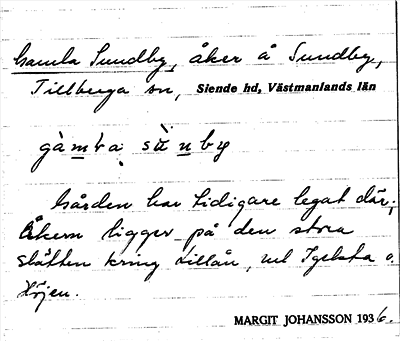 Gamla Sundby, åker å Sundby,
Tillberga sn, Siende hd, Västmanlands län
gàmḷa sùnby
Gården har tidigare legat där;
Åkern ligger på den stora
slätten kring Lillån, vid Igelsta o.
Höjen.
MARGIT JOHANSSON 1936.